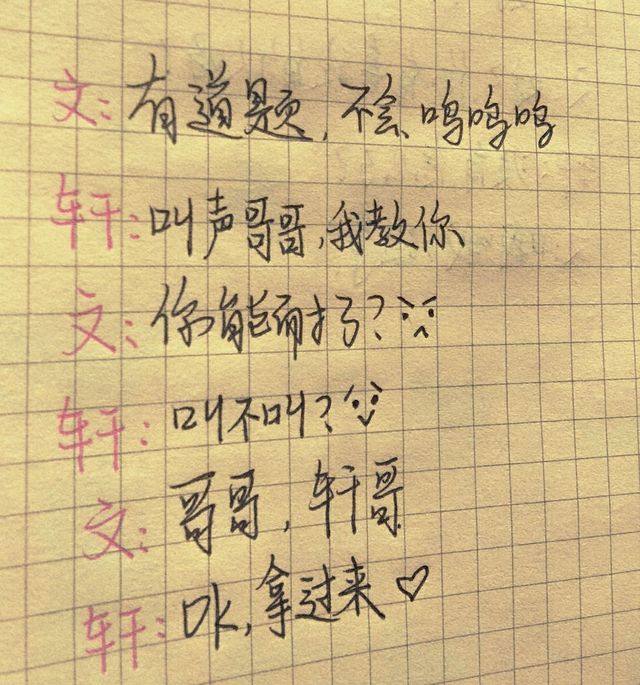 文:有道题,不会、呜呜呜
轩:叫声哥哥,我教你
文:你能耐了?
轩:叫不叫?
文:哥哥,轩哥
轩:Ok,拿过来♡